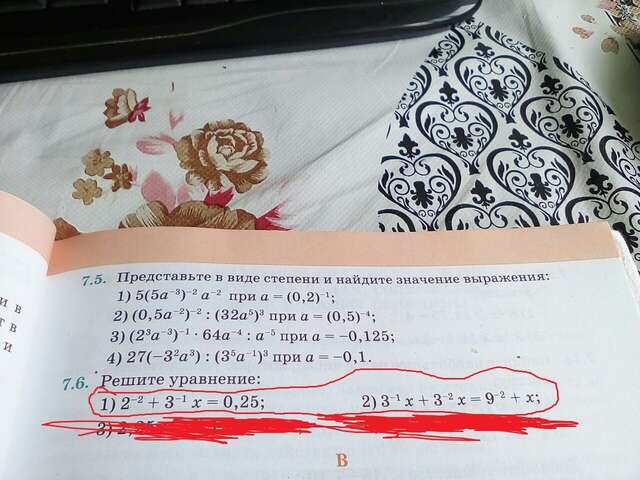 7.5. Представьте в виде степени и найдите значение выражения:
1) 5(5a⁻³)⁻² a⁻² при a = (0,2)⁻¹;
2) (0,5a⁻²)⁻² : (32a⁵)³ при a = (0,5)⁻⁴;
3) (2³a⁻³)⁻¹ · 64a⁻⁴ : a⁻⁵ при a = –0,125;
4) 27(–3²a³) : (3⁵a⁻¹)³ при a = –0,1.
7.6. Решите уравнение:
1) 2⁻² + 3⁻¹ x = 0,25; 2) 3⁻¹ x + 3⁻² x = 9⁻² + x;
3)
В
и в
т в
и